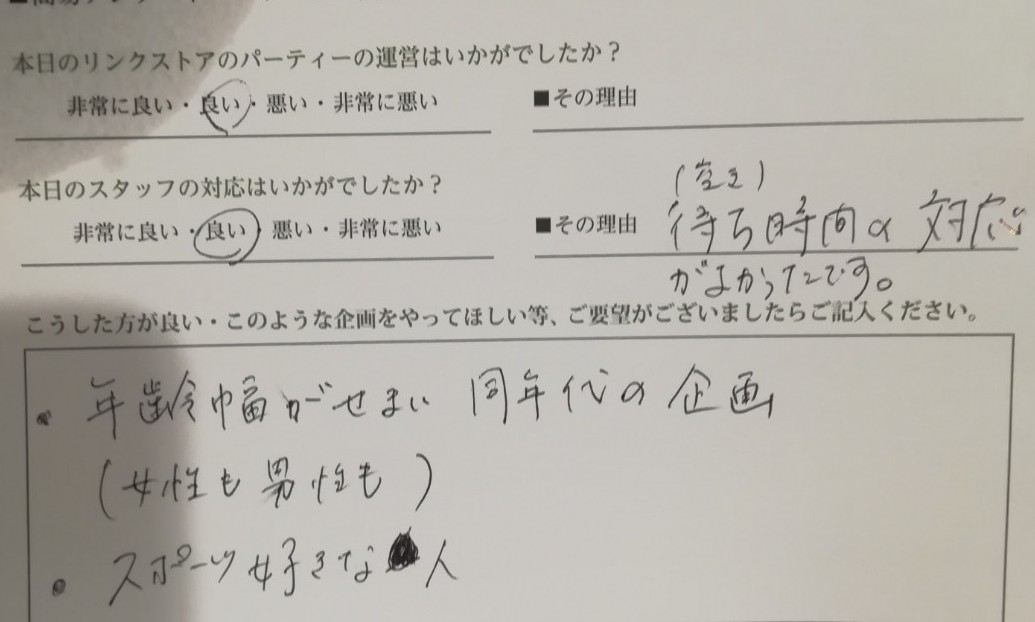 本日のリンクストアのパーティーの運営はいかがでしたか？
非常に良い・良い・悪い・非常に悪い
■その理由
本日のスタッフの対応はいかがでしたか？
非常に良い・良い・悪い・非常に悪い
■その理由
(空き)
待ち時間の対応
がよかったです。
こうした方が良い・このような企画をやってほしい等、ご要望がございましたらご記入ください。
・年齢幅がせまい 同年代の企画
(女性も男性も)
・スポーツ好きな人